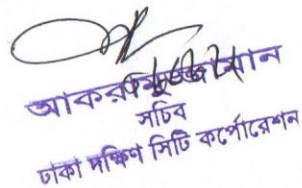 আকরামুজ্জামান
সচিব
ঢাকা দক্ষিণ সিটি কর্পোরেশন